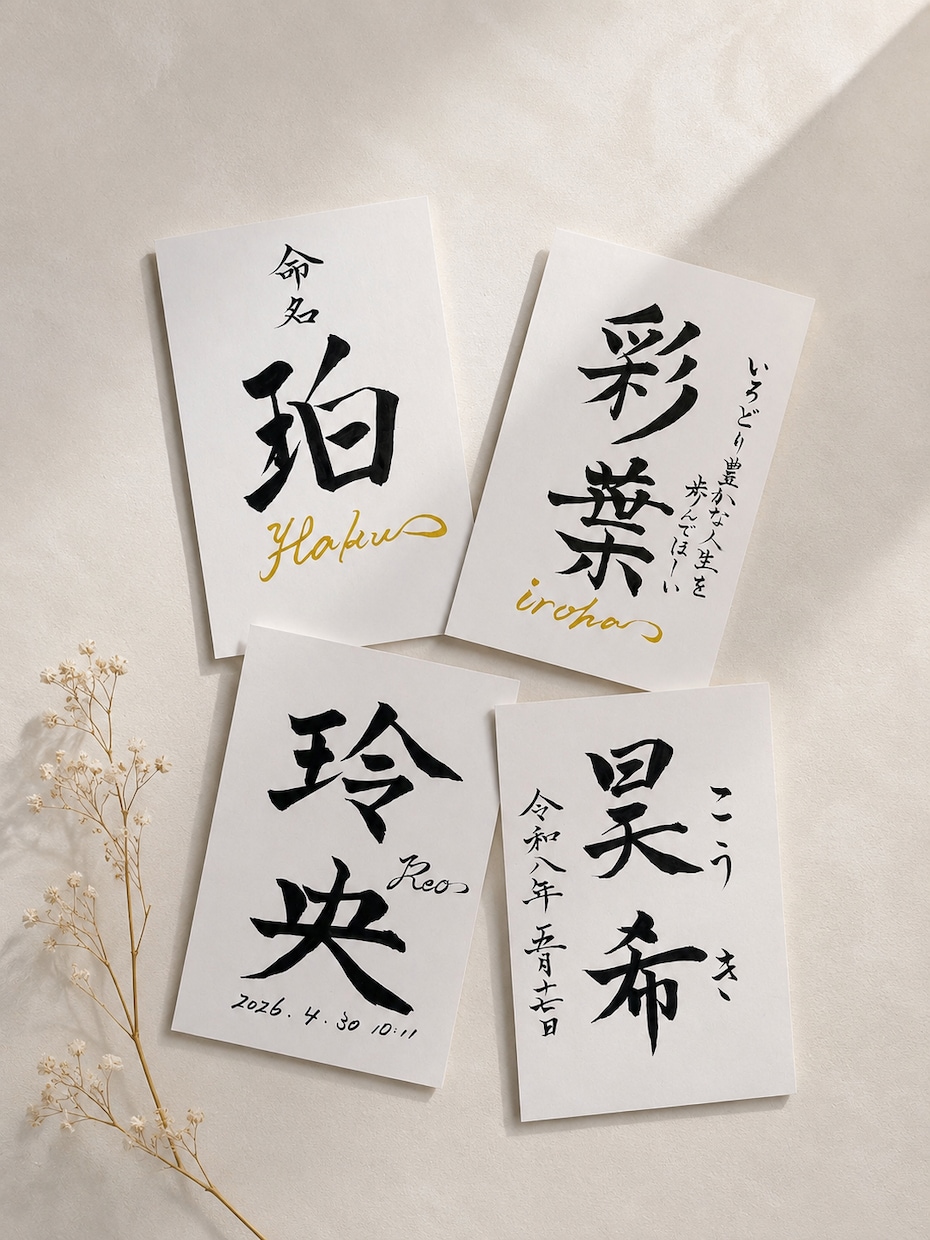 命名
珀
Haku
彩葉
いろどり豊かな人生を
歩んでほしい
iroha
玲央
Reo
2026.4.30 10:11
昊希
こうき
令和八年 五月十七日